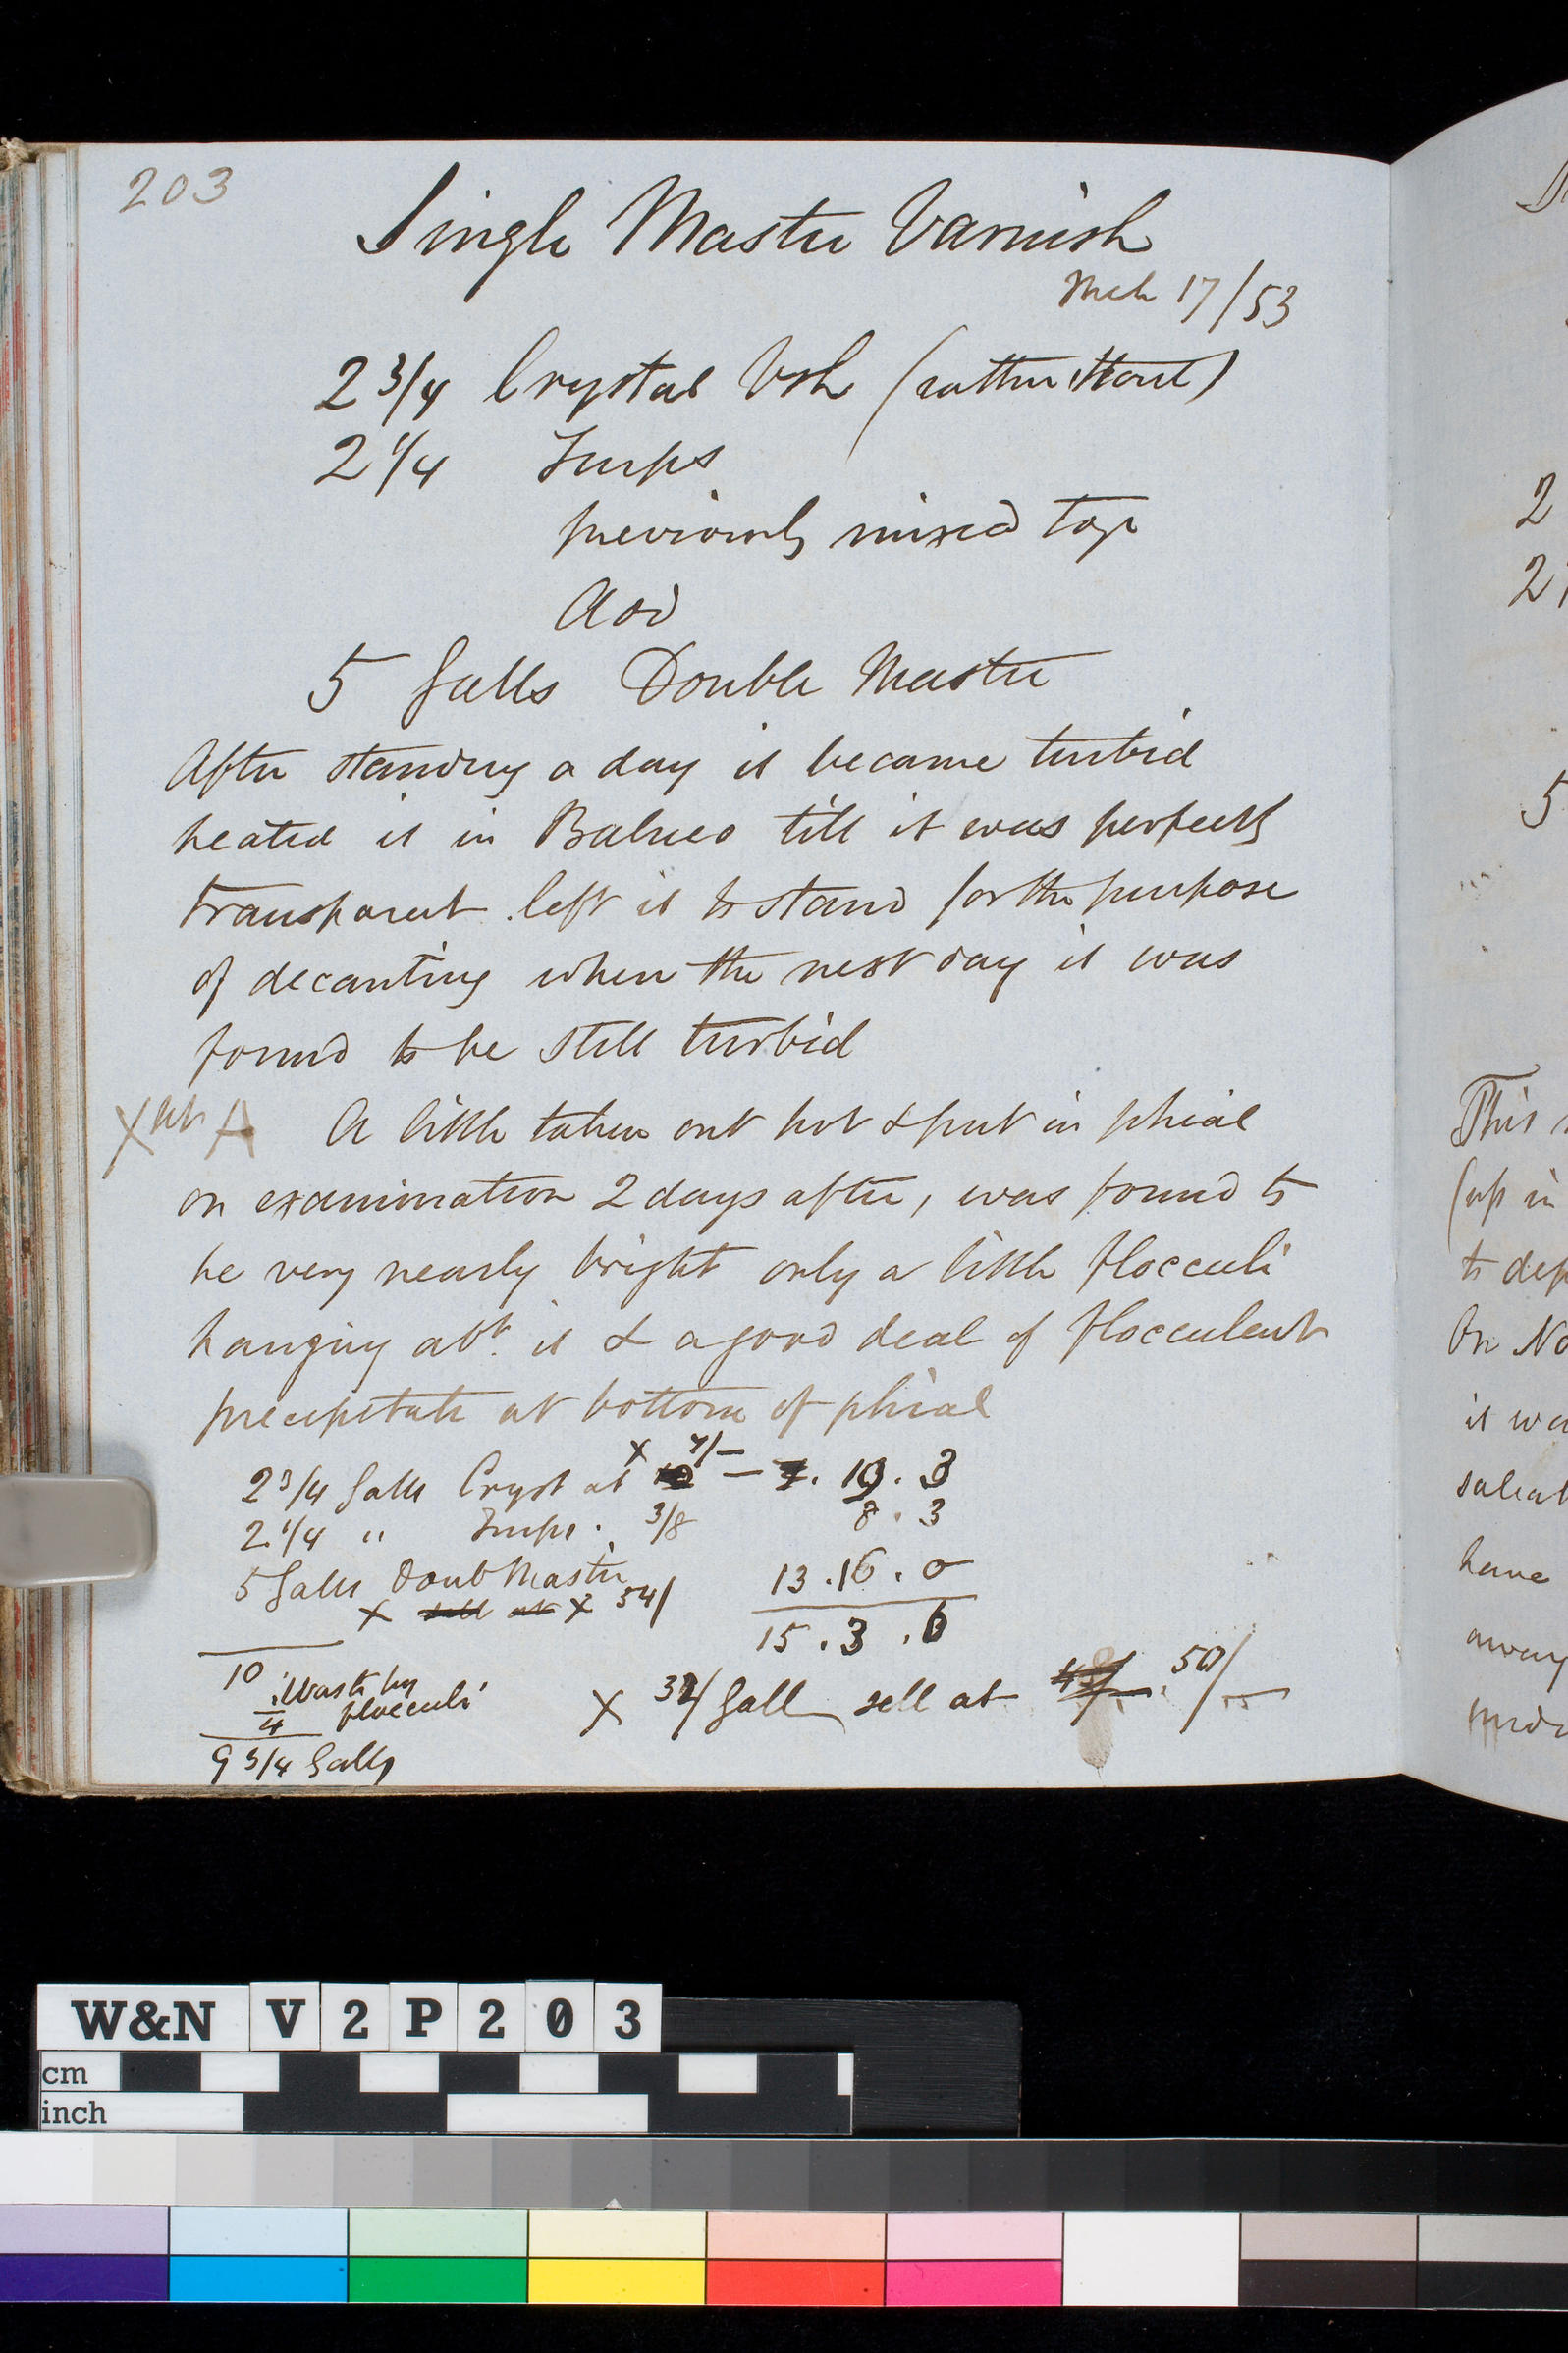 203
Single Mastic Varnish
Mch 17/53
2 3/4 Crystal Vsh (rather stout)
2 1/4 Turps
previously mixed tog
Add
5 Galls Double Mastic
After standing a day it became turbid
heated it in Balneo till it was perfectly
transparent left it to stand for the purpose
of decanting when the next day it was
found to be still turbid
X at A A little taken out hot & put in phial
on examination 2 days after, was found to
be very nearly bright only a little flocculi
hanging abt. it & a good deal of flocculent
precipitate at bottom of phial
2 3/4 Galls Cryst at x 7/- — 19 . 3
2 1/4 " Turps . 3/8 8 . 3
5 Galls Doub Mastic 13 . 16 . 0
x sell at x 54/ 15 . 3 . 6
10
1/4 Waste by
flocculi
9 3/4 Galls
x Gall sell at 50/-
2
2
5
This
to dep
On No
it wa
have
away
W&N V 2 P 2 0 3
cm
inch